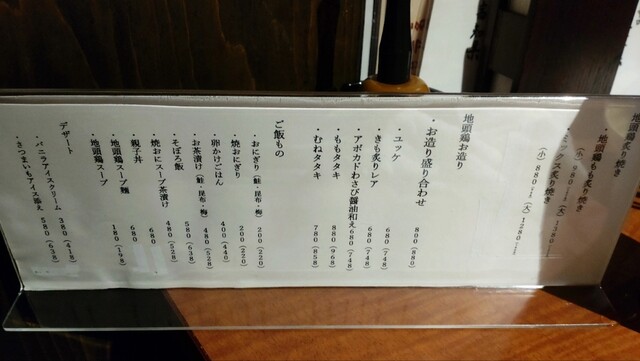 地頭鶏炙り焼き
・地頭鶏もも炙り焼き
(小) 980 (大) 1380
ミックス炙り焼き
(小) 880 (大) 1280
地頭鶏お造り
・お造り盛り合わせ 800 (880)
・ユッケ 680 (748)
・きも炙りレア 680 (748)
・アボカドわさび醤油和え 680 (748)
・ももタタキ 880 (968)
・むねタタキ 780 (858)
ご飯もの
・おにぎり (鮭・昆布・梅) 200 (220)
・焼おにぎり 200 (220)
・卵かけごはん 400 (440)
・お茶漬け (鮭・昆布・梅) 480 (528)
・そぼろ飯 580 (638)
・焼おにスープ茶漬け 480 (528)
・親子丼 680
・地頭鶏スープ麺 680
・地頭鶏スープ 180 (198)
デザート
・バニラアイスクリーム 380 (418)
・さつまいもアイス添え 580 (638)